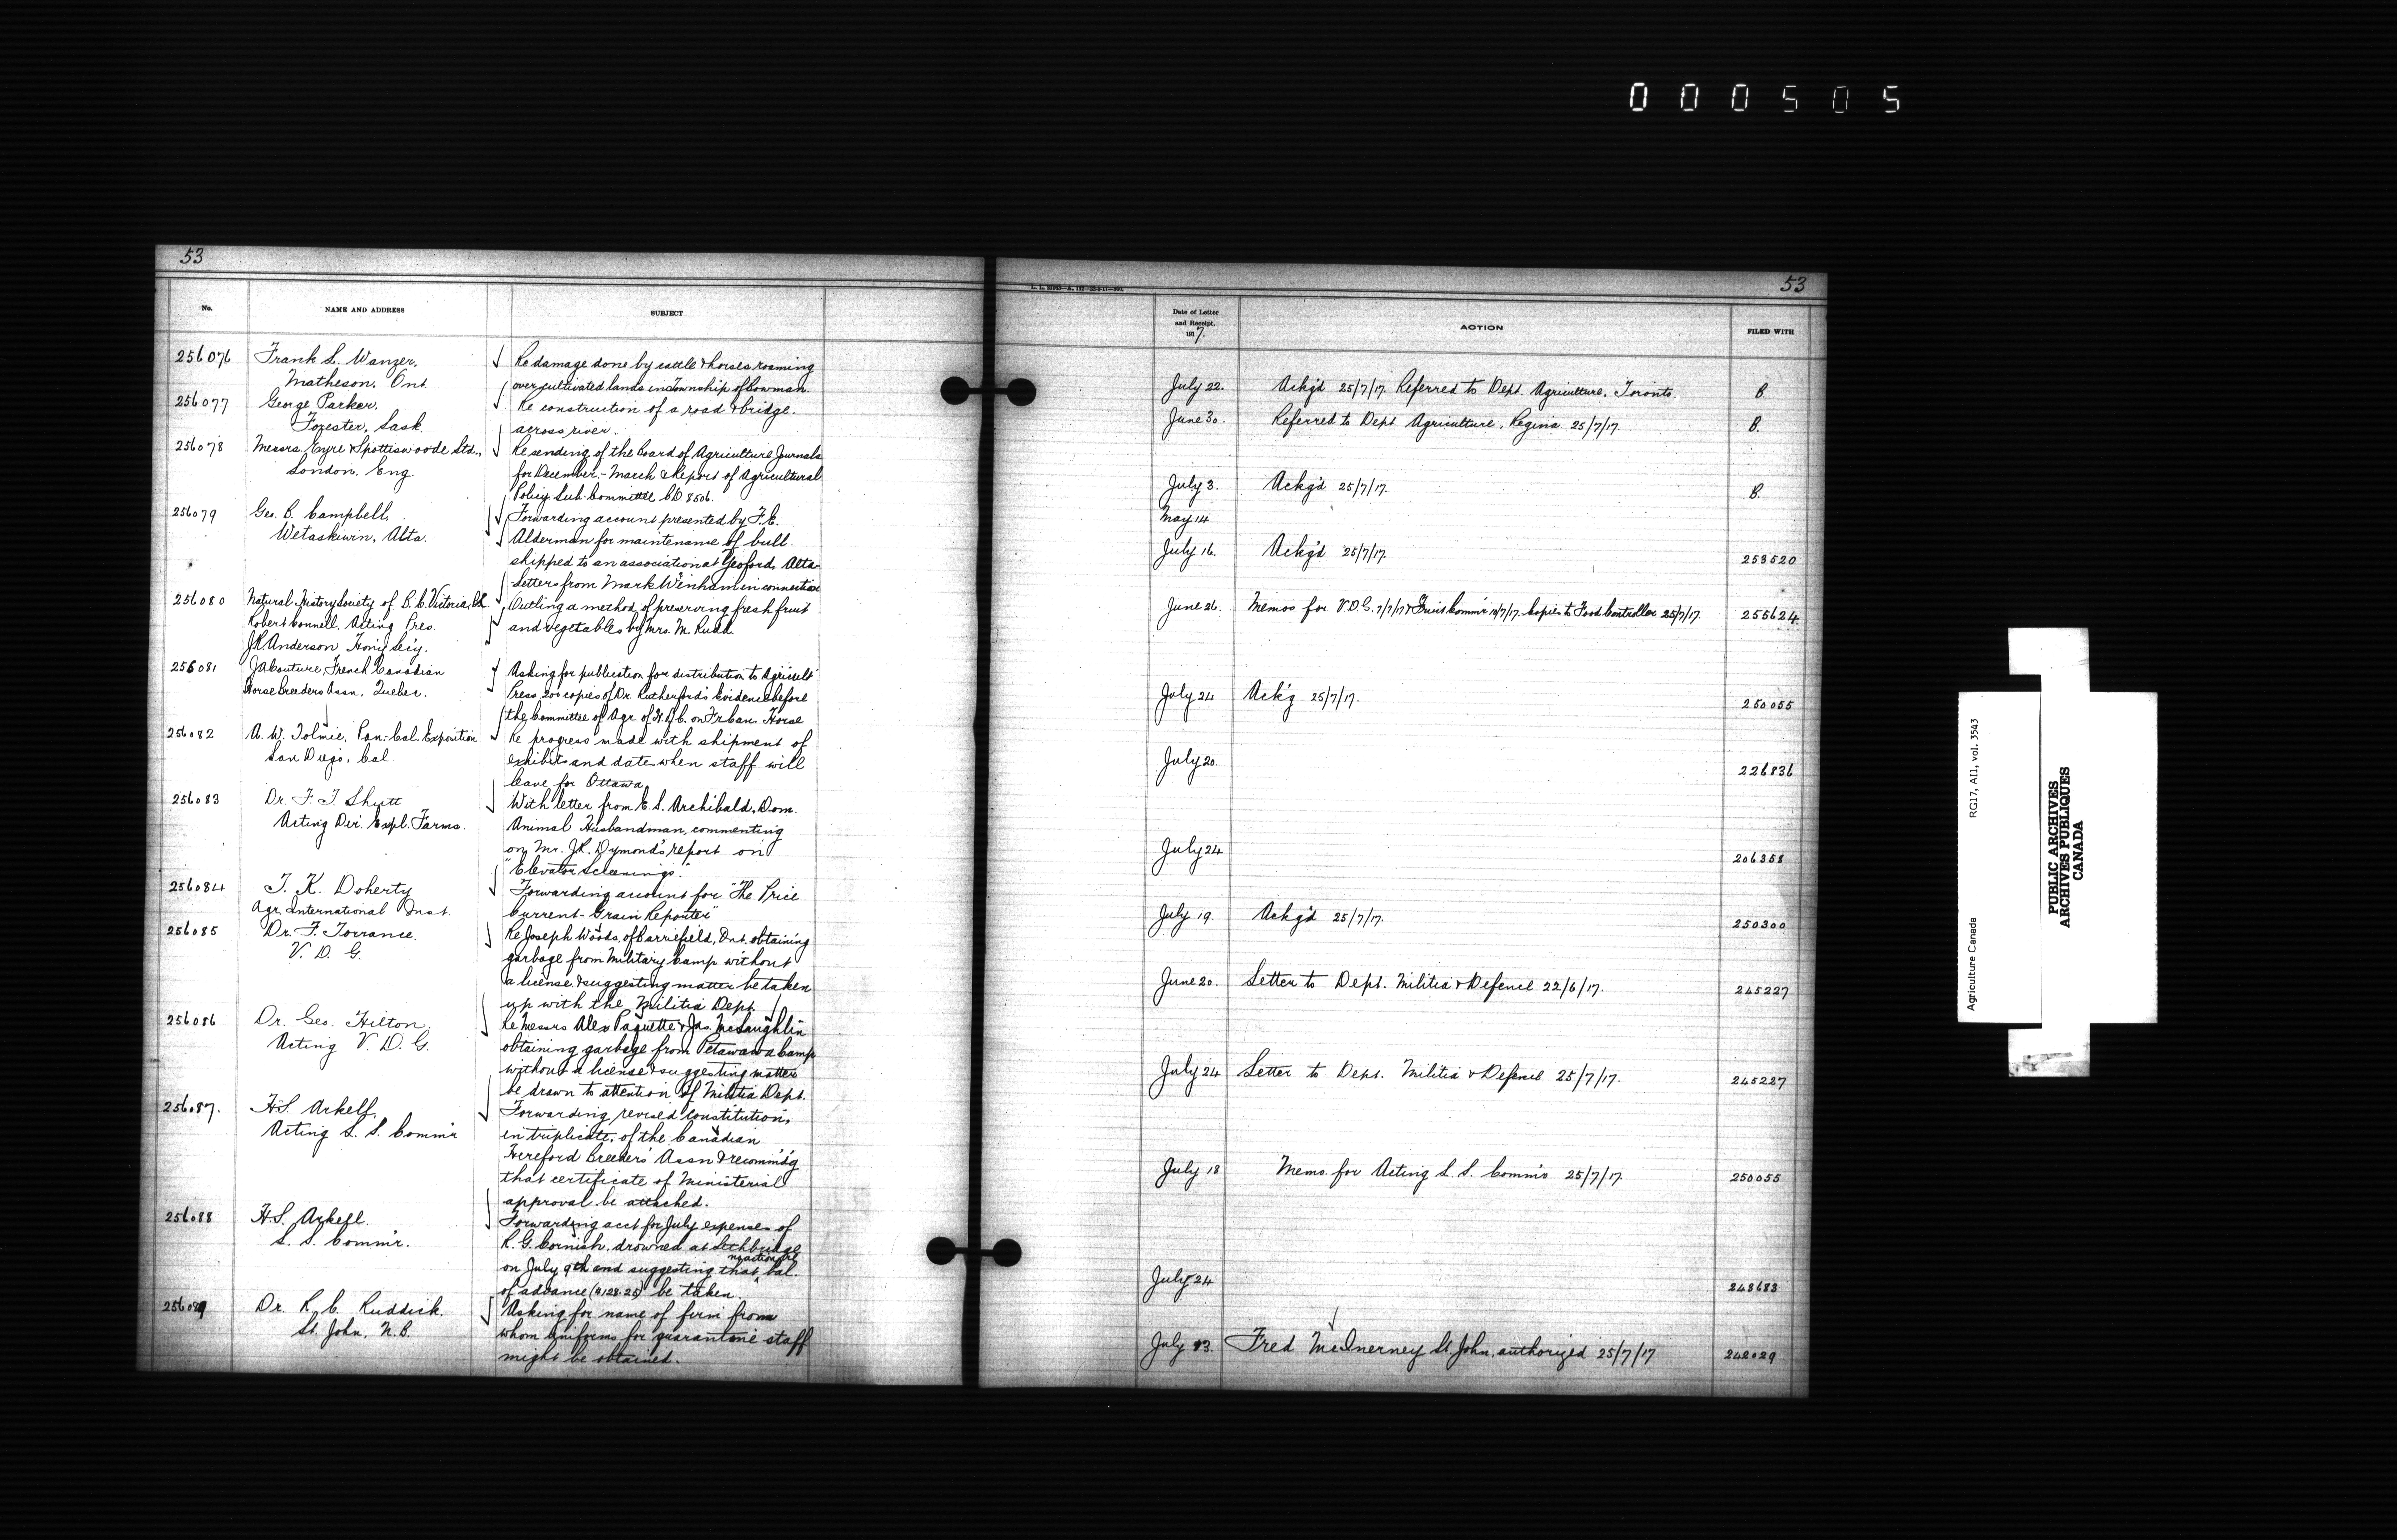 000505
53
No.
NAME AND ADDRESS
SUBJECT
256076
Frank L. Wanzer,
Matheson, Ont.
Re damage done by cattle & horses roaming
over cultivated lands in Township of Bowman.
256077
George Parker,
Forester, Sask.
Re construction of a road & bridge
across river.
256078
Messrs. Eyre & Spottiswoode Ltd.,
London, Eng.
Re sending of the Board of Agriculture Journals
for December - March & Report of Agricultural
Policy Sub-Committee CD. 8506.
256079
Geo. B. Campbell,
Wetaskiwin, Alta.
Forwarding account presented by F. E.
Alderman for maintenance of bull
shipped to an association at Yeoford, Alta.
Letters from Mark Winham in connection
256080
Natural History Society of B.C. Victoria, B.C.
Robert Connell, Acting Pres.
J.R. Anderson Hon'y Sec'y.
Outling a method of preserving fresh fruit
and vegetables by Mrs. M. Rudd.
256081
J A Couture, French Canadian
Horse Breeders Assn, Quebec.
Asking for publication for distribution to Agricult
Press 200 copies of Dr. Rutherford's Evidence before
the Committee of Agr. of H. of C. on Fr Can. Horse
256082
A. W. Tolmie, Pan-Cal. Exposition
San Diego, Cal
Re progress made with shipment of
exhibits and date when staff will
leave for Ottawa
256083
Dr. F. T. Shutt
Acting Dir. Expl. Farms.
With letter from E. S. Archibald, Dom.
Animal Husbandman, commenting
on Mr. J.R. Dymond's report on
"Elevator Screenings".
256084
T. K. Doherty
Agr. International Inst.
Forwarding account for "The Price
Current - Grain Reporter"
256085
Dr. F. Torrance.
V. D. G.
Re Joseph Woods, of Barriefield, Ont. obtaining
garbage from Military Camp without
a license & suggesting matter be taken
up with the Militia Dept.
256086
Dr. Geo. Hilton,
Acting V. D. G.
Re Messrs Alex Paquette & Jas. McLaughlin
obtaining garbage from Petawawa Camp
without a license & suggesting matter
be drawn to attention of Militia Dept.
256087.
H.S. Arkell,
Acting L. S. Comm'r
Forwarding revised constitution,
in triplicate, of the Canadian
Hereford Breeders' Assn & recomm'd'g
that certificate of Ministerial
approval be attached.
256088
H.S. Arkell.
L. S. Comm'r.
Forwarding acct for July expenses of
R. G. Cornish, drowned at Lethbridge
no action re
on July 9th and suggesting that bal.
of advance ($128.25) be taken.
256089
Dr. R. C. Ruddick.
St. John, N.B.
Asking for name of firm from
whom uniforms for quarantine staff
might be obtained.
53
Date of Letter
and Receipt.
1917.
ACTION
FILED WITH
July 22.
Ackg'd 25/7/17. Referred to Dept. Agriculture, Toronto.
B.
June 30.
Referred to Dept Agriculture, Regina 25/7/17.
B.
July 3.
Ackg'd 25/7/17.
B.
May 14
July 16.
Ackg'd 25/7/17.
253520
June 26.
Memos for V.D.G. 7/7/17 & Fruit Comm'r 14/7/17. Copies to Food Controller 25/7/17.
255624.
July 24
Ack'g 25/7/17.
250055
July 20.
226836
July 24
206358
July 19.
Ackg'd 25/7/17.
250300
June 20.
Letter to Dept. Militia & Defence 22/6/17.
245227
July 24
Letter to Dept. Militia & Defence 25/7/17.
245227
July 18
Memo. for Acting L. S. Comm'r 25/7/17.
250055
July 24
243683
July 23.
Fred McInerney St. John, authorized 25/7/17
242029
Agriculture Canada
RG17, AII, vol. 3543
PUBLIC ARCHIVES
ARCHIVES PUBLIQUES
CANADA